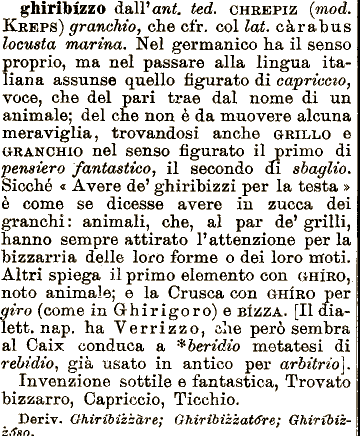 ghiribízzo dall'ant. ted. CHREPIZ (mod.
KREPS) granchio, che cfr. col lat. càrabus
locusta marina. Nel germanico ha il senso
proprio, ma nel passare alla lingua ita-
liana assunse quello figurato di capriccio,
voce, che del pari trae dal nome di un
animale; del che non è da muovere alcuna
meraviglia, trovandosi anche GRILLO e
GRANCHIO nel senso figurato il primo di
pensiero fantastico, il secondo di sbaglio.
Sicché « Avere de' ghiribizzi per la testa »
è come se dicesse avere in zucca dei
granchi: animali, che, al par de' grilli,
hanno sempre attirato l'attenzione per la
bizzarria delle loro forme o dei loro moti.
Altri spiega il primo elemento con GHÍRO,
noto animale; e la Crusca con GHÍRO per
giro (come in Ghirigoro) e BÍZZA. [Il dia-
lett. nap. ha Verrizzo, che però sembra
al Caix conduca a *beridio metatesi di
rebidio, già usato in antico per arbitrio].
Invenzione sottile e fantastica, Trovato
bizzarro, Capriccio, Ticchio.
Deriv. Ghiribizzàre; Ghiribizzatóre; Ghiribiz-
zóso.